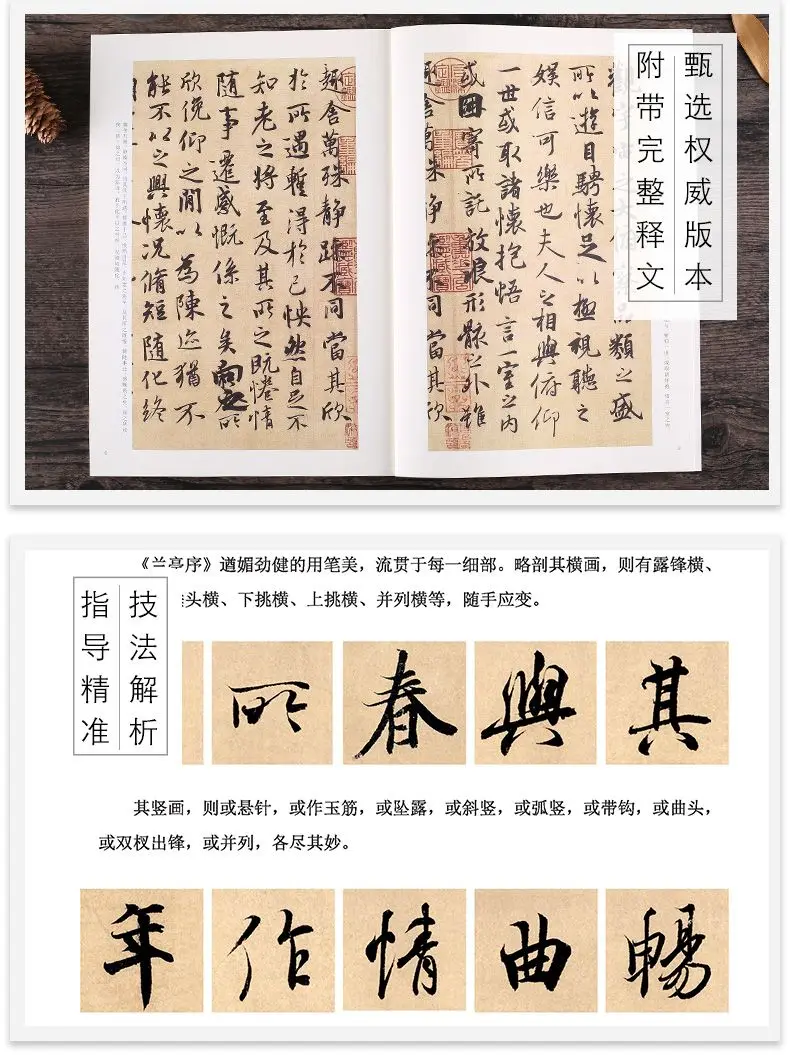 甄选权威版本
附带完整释文
類之盛
所以遊目騁懷足以極視聽之
娛信可樂也夫人之相與俯仰
一世或取諸懷抱悟言一室之內
或因寄所託放浪形骸之外雖
趣舍萬殊靜躁不同當其欣
趣舍萬殊靜躁不同當其欣
於所遇暫得於己怏然自足不
知老之將至及其所之既惓情
隨事遷感慨係之矣向之所
欣俛仰之間以為陳迹猶不
能不以之興懷況脩短隨化終
技法解析
指导精准
《兰亭序》遒媚劲健的用笔美，流贯于每一细部。略剖其横画，则有露锋横、
头横、下挑横、上挑横、并列横等，随手应变。
所 春 與 其
其竖画，则或悬针，或作玉筋，或坠露，或斜竖，或弧竖，或带钩，或曲头，
或双杈出锋，或并列，各尽其妙。
年 作 情 曲 暢